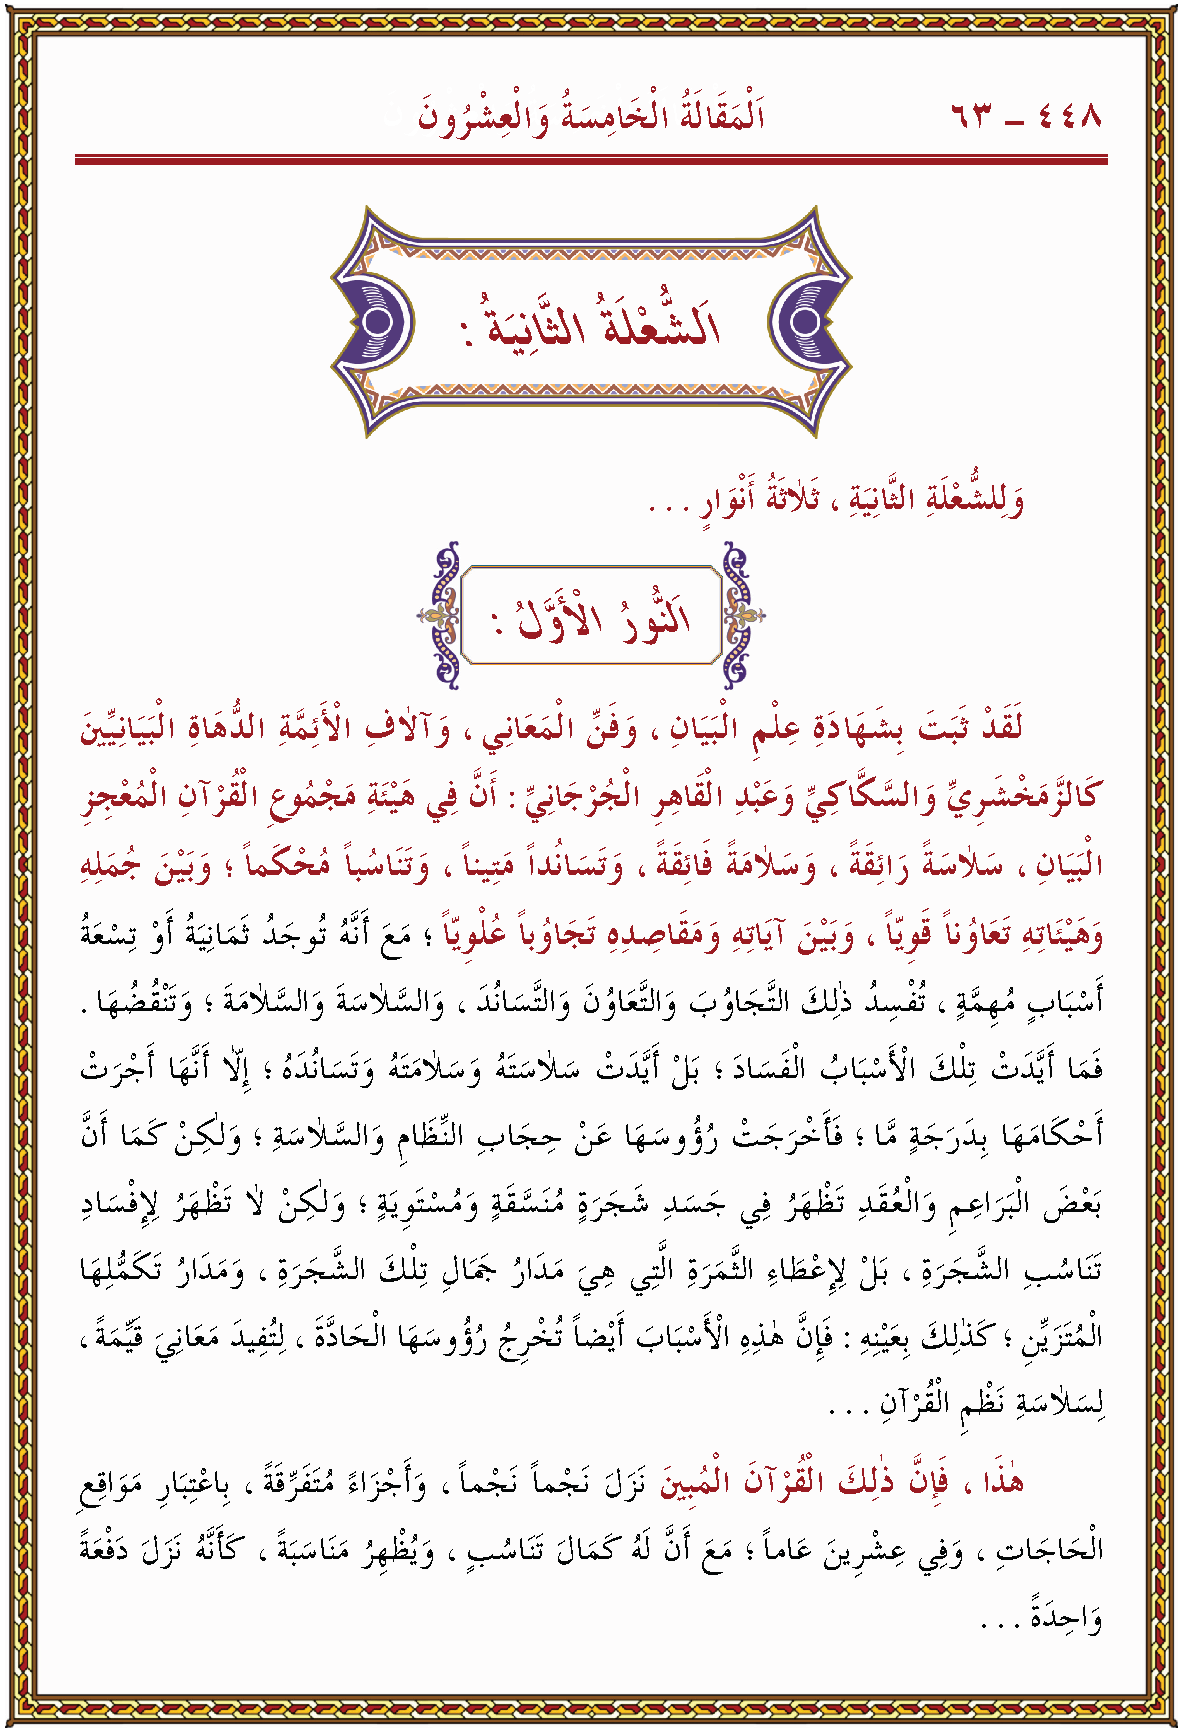 ٤٤٨ – ٦٣ اَلْمَقَالَةُ الْخَامِسَةُ وَالْعِشْرُونَ
اَلشُّعْلَةُ الثَّانِيَةُ :
وَلِلشُّعْلَةِ الثَّانِيَةِ ، ثَلاٰثَةُ أَنْوَارٍ . . .
اَلنُّورُ الْأَوَّلُ :
لَقَدْ ثَبَتَ بِشَهَادَةِ عِلْمِ الْبَيَانِ ، وَفَنِّ الْمَعَانِي ، وَآلاٰفِ الْأَئِمَّةِ الدُّهَاةِ الْبَيَانِيِّينَ
كَالزَّمَخْشَرِيِّ وَالسَّكَّاكِيِّ وَعَبْدِ الْقَاهِرِ الْجُرْجَانِيِّ : أَنَّ فِي هَيْئَةِ مَجْمُوعِ الْقُرْآنِ الْمُعْجِزِ
الْبَيَانِ ، سَلاٰسَةً رَائِقَةً ، وَسَلاٰمَةً فَائِقَةً ، وَتَسَانُداً مَتِيناً ، وَتَنَاسُباً مُحْكَماً ؛ وَبَيْنَ جُمَلِهِ
وَهَيْئَاتِهِ تَعَاوُناً قَوِيّاً ، وَبَيْنَ آيَاتِهِ وَمَقَاصِدِهِ تَجَاوُباً عُلْوِيّاً ؛ مَعَ أَنَّهُ تُوجَدُ ثَمَانِيَةُ أَوْ تِسْعَةُ
أَسْبَابٍ مُهِمَّةٍ ، تُفْسِدُ ذٰلِكَ التَّجَاوُبَ وَالتَّعَاوُنَ وَالتَّسَانُدَ ، وَالسَّلاٰسَةَ وَالسَّلاٰمَةَ ؛ وَتَنْقُضُهَا .
فَمَا أَيَّدَتْ تِلْكَ الْأَسْبَابُ الْفَسَادَ ؛ بَلْ أَيَّدَتْ سَلاٰسَتَهُ وَسَلاٰمَتَهُ وَتَسَانُدَهُ ؛ إِلاّٰ أَنَّهَا أَجْرَتْ
أَحْكَامَهَا بِدَرَجَةٍ مَّا ؛ فَأَخْرَجَتْ رُؤُوسَهَا عَنْ حِجَابِ النِّظَامِ وَالسَّلاٰسَةِ ؛ وَلٰكِنْ كَمَا أَنَّ
بَعْضَ الْبَرَاعِمِ وَالْعُقَدِ تَظْهَرُ فِي جَسَدِ شَجَرَةٍ مُنَسَّقَةٍ وَمُسْتَوِيَةٍ ؛ وَلٰكِنْ لاٰ تَظْهَرُ لِإِفْسَادِ
تَنَاسُبِ الشَّجَرَةِ ، بَلْ لِإِعْطَاءِ الثَّمَرَةِ الَّتِي هِيَ مَدَارُ جَمَالِ تِلْكَ الشَّجَرَةِ ، وَمَدَارُ تَكَمُّلِهَا
الْمُتَزَيِّنِ ؛ كَذٰلِكَ بِعَيْنِهِ : فَإِنَّ هٰذِهِ الْأَسْبَابَ أَيْضاً تُخْرِجُ رُؤُوسَهَا الْحَادَّةَ ، لِتُفِيدَ مَعَانِيَ قَيِّمَةً ،
لِسَلاٰسَةِ نَظْمِ الْقُرْآنِ . . .
هٰذَا ، فَإِنَّ ذٰلِكَ الْقُرْآنَ الْمُبِينَ نَزَلَ نَجْماً نَجْماً ، وَأَجْزَاءً مُتَفَرِّقَةً ، بِاعْتِبَارِ مَوَاقِعِ
الْحَاجَاتِ ، وَفِي عِشْرِينَ عَاماً ؛ مَعَ أَنَّ لَهُ كَمَالَ تَنَاسُبٍ ، وَيُظْهِرُ مَنَاسَبَةً ، كَأَنَّهُ نَزَلَ دَفْعَةً
وَاحِدَةً . . .